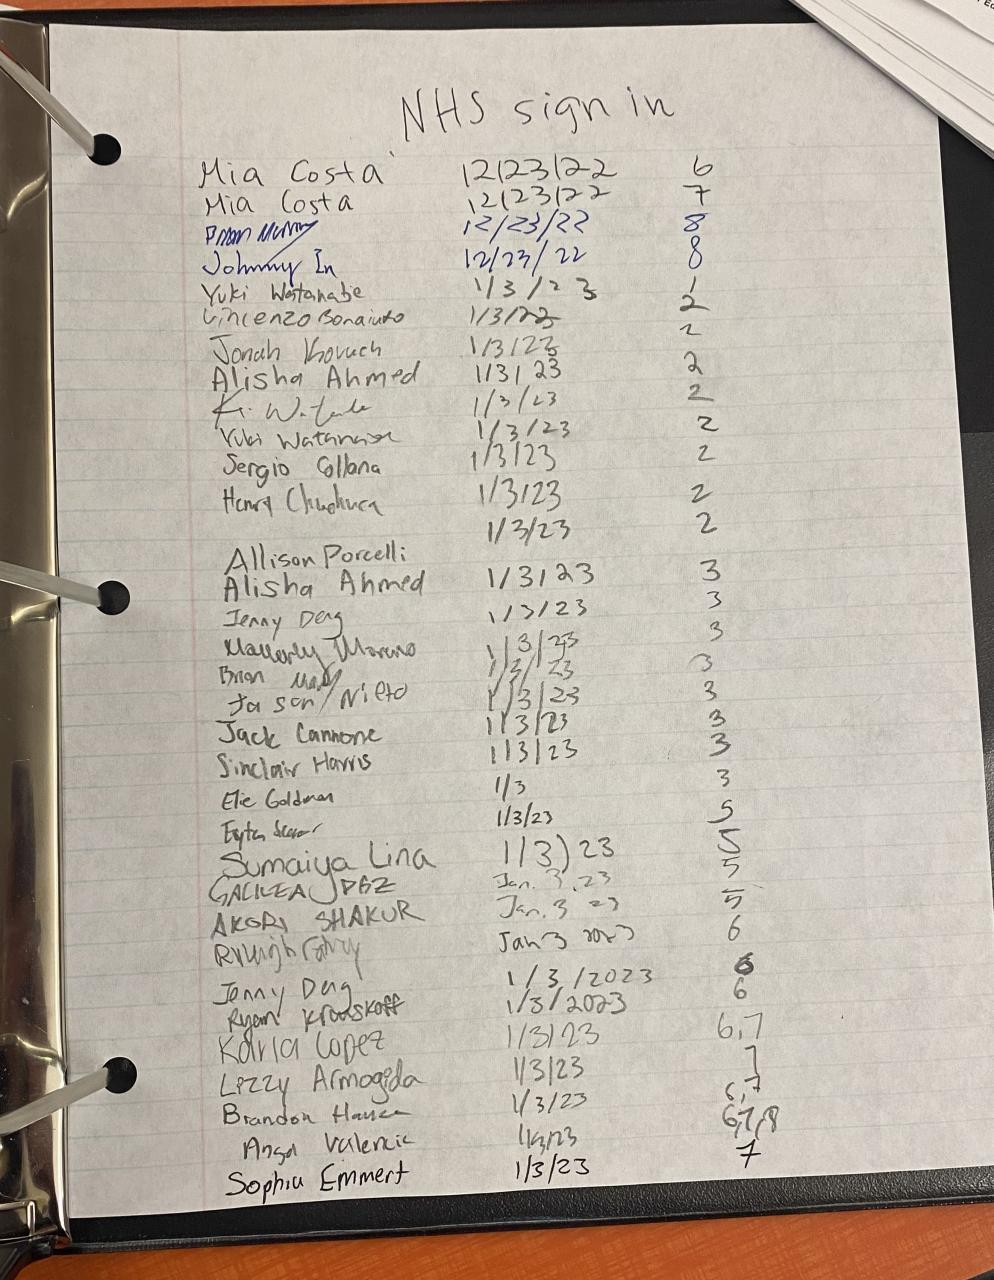 NHS sign in
Mia Costa 12/23/22 6
Mia Costa 12/23/22 7
Brian 12/23/22 8
Johnny In 12/23/22 8
Yuki Watanabe 1/3/23 1
Vincenzo Bonaiuto 1/3/23 2
Jonah 1/3/23 2
Alisha Ahmed 1/3/23 2
1/3/23 2
Yuki Watanabe 1/3/23 2
Sergio 1/3/23 2
Henry 1/3/23 2
Allison Porcelli 1/3/23 2
Alisha Ahmed 1/3/23 3
Jenny 1/3/23 3
Moreno 1/3/23 3
Brian 1/3/23 3
Jason Nieto 1/3/23 3
Jack Cannone 1/3/23 3
Sinclair Harris 1/3/23 3
Elie Goldman 1/3 3
1/3/23 5
Sumaiya Lina 1/3/23 5
GALILEA Jan. 3, 23 5
SHAKUR Jan. 3 23 5
Jan 3 2023 6
Jenny 1/3/2023 6
Ryan 1/3/2023 6
Karla Lopez 1/3/23 6,7
Lizzy Armogida 1/3/23 7
Brandon 1/3/23 6,7
Valencia 1/3/23 6,7,8
Sophia Emmert 1/3/23 7